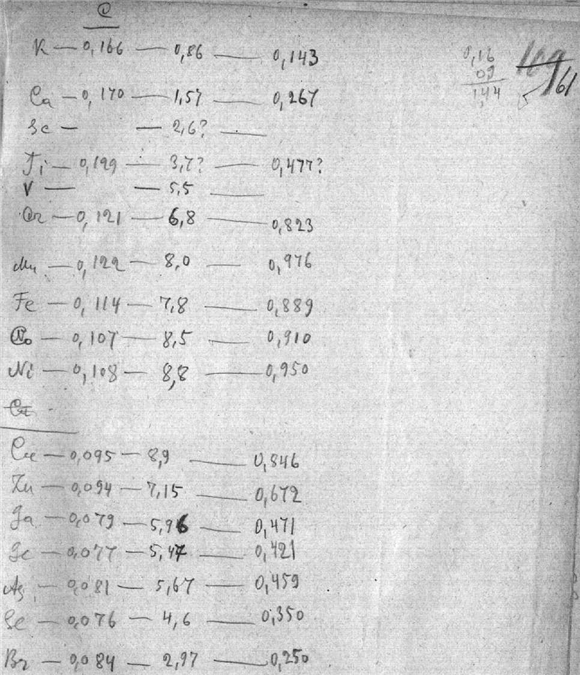 Q
K — 0,166 — 0,86 — 0,143
Ca — 0,170 — 1,57 — 0,267
Sc — — 2,6? —
Ti — 0,129 — 3,7? — 0,477?
V — — 5,5 —
Cr — 0,121 — 6,8 — 0,823
Mn — 0,122 — 8,0 — 0,976
Fe — 0,114 — 7,8 — 0,889
Co — 0,107 — 8,5 — 0,910
Ni — 0,108 — 8,8 — 0,950
Cu — 0,095 — 8,9 — 0,846
Zn — 0,094 — 7,15 — 0,672
Ga — 0,079 — 5,96 — 0,471
Ge — 0,077 — 5,47 — 0,421
As — 0,081 — 5,67 — 0,459
Se — 0,076 — 4,6 — 0,350
Br — 0,084 — 2,97 — 0,250
0,16
09
1,44
161